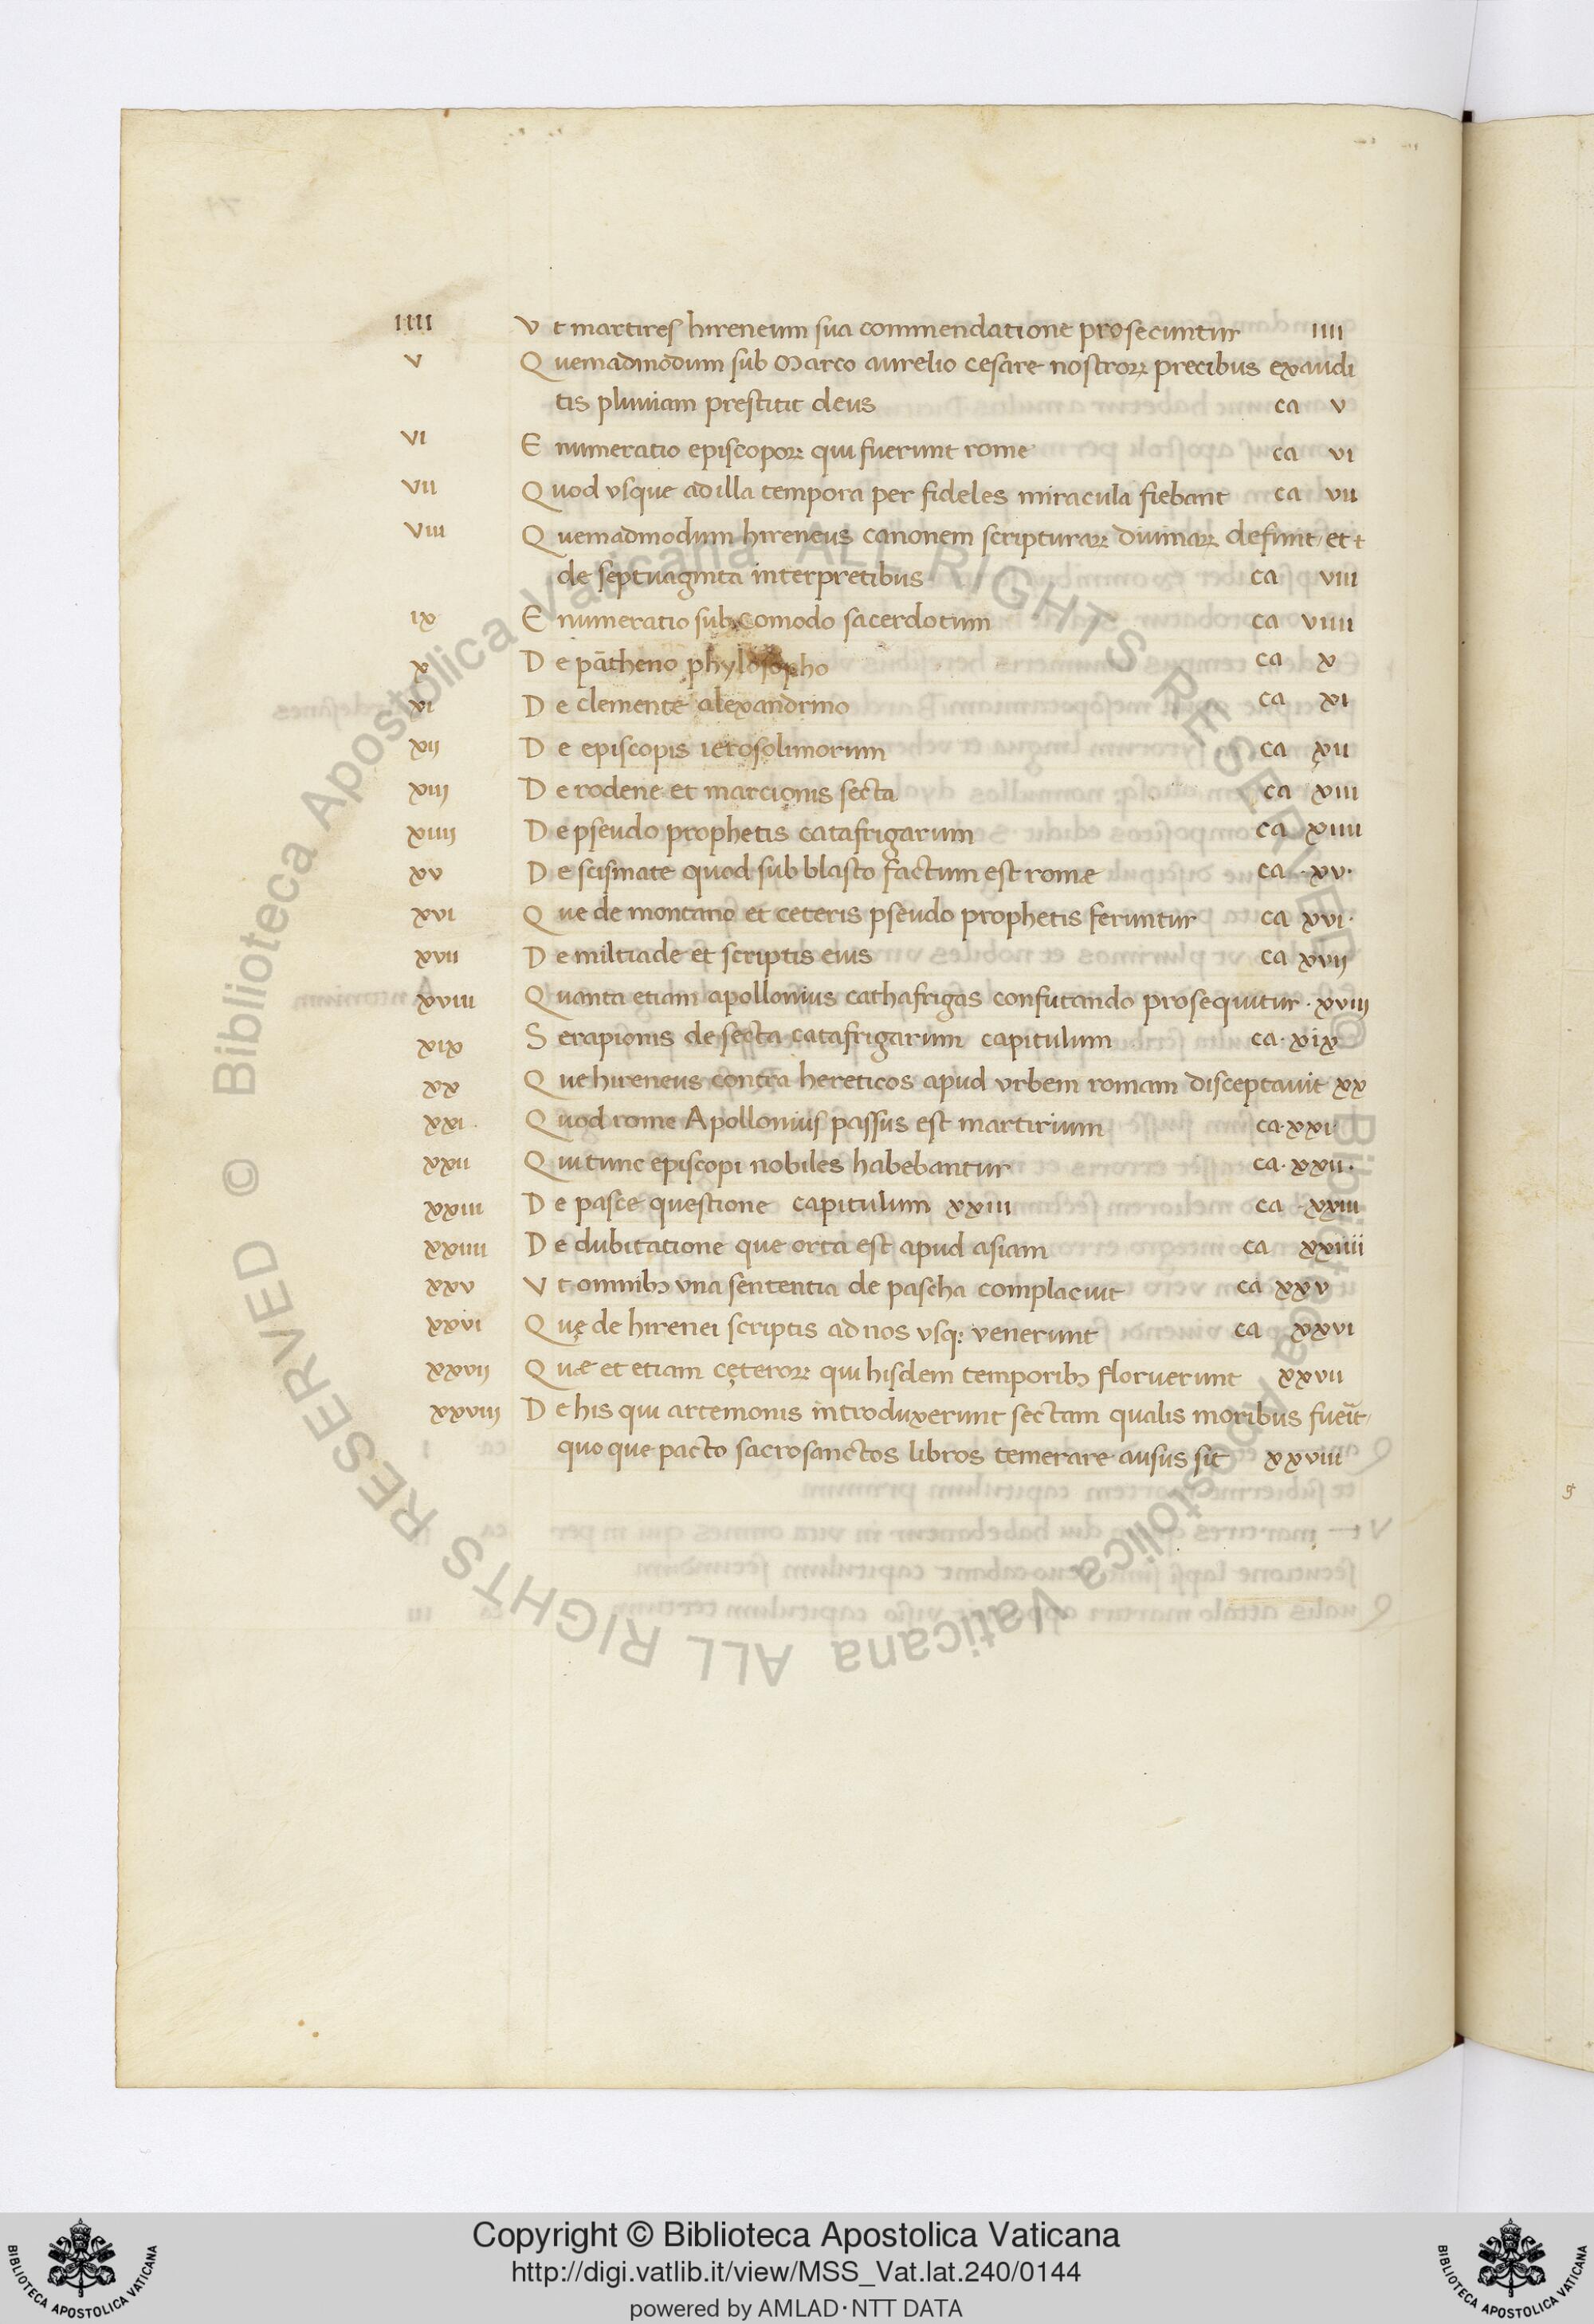 IIII Vt martires hireneum sua commendatione prosecuntur IIII
V Quemadmodum sub Marco aurelio cesare nostroꝝ precibus exaudi
tis pluuiam prestitit deus ca V
VI Enumeratio episcopoꝝ qui fuerunt rome ca VI
VII Quod vsque ad illa tempora per fideles miracula fiebant ca VII
VIII Quemadmodum hireneus canonem scripturaꝝ diuinaꝝ definit et
de septuaginta interpretibus ca VIII
IX Enumeratio sub comodo sacerdotum ca VIIII
X De pātheno phylosopho ca X
XI De clemente alexandrino ca XI
XII De episcopis ierosolimorum ca XII
XIII De rodene et marcionis secta ca XIII
XIIII De pseudo prophetis catafrigarum ca XIIII
XV De scismate quod sub blasto factum est romæ ca XV.
XVI Que de montano et ceteris pseudo prophetis feruntur ca XVI.
XVII De miltiade et scriptis eius ca XVII
XVIII Quanta etiam apollonius cathafrigas confutando prosequitur . XVIII
XIX Serapionis de secta catafrigarum capitulum ca. XIX
XX Que hireneus contra hereticos apud vrbem romam disceptauit XX
XXI. Quod rome Apollonius passus est martirium ca. XXI.
XXII Qui tunc episcopi nobiles habebantur ca. XXII.
XXIII De pasce questione capitulum XXIII ca XXIII
XXIIII De dubitatione que orta est apud asiam ca XXIIII
XXV Vt omnibꝫ vna sententia de pascha complacuit ca XXV
XXVI Quę de hirenei scriptis ad nos vsqꝫ venerunt ca XXVI
XXVII Quæ et etiam cęteroꝝ qui hisdem temporibꝫ floruerunt XXVII
XXVIII De his qui artemonis introduxerunt sectam qualis moribus fuerit/
quo que pacto sacrosanctos libros temerare ausus sit XXVIII
© Biblioteca Apostolica Vaticana ALL RIGHTS RESERVED © Biblioteca Apostolica Vaticana ALL RIGHTS RESERVED
Copyright © Biblioteca Apostolica Vaticana
http://digi.vatlib.it/view/MSS_Vat.lat.240/0144
powered by AMLAD·NTT DATA
BIBLIOTECA APOSTOLICA VATICANA
BIBLIOTECA APOSTOLICA VATICANA